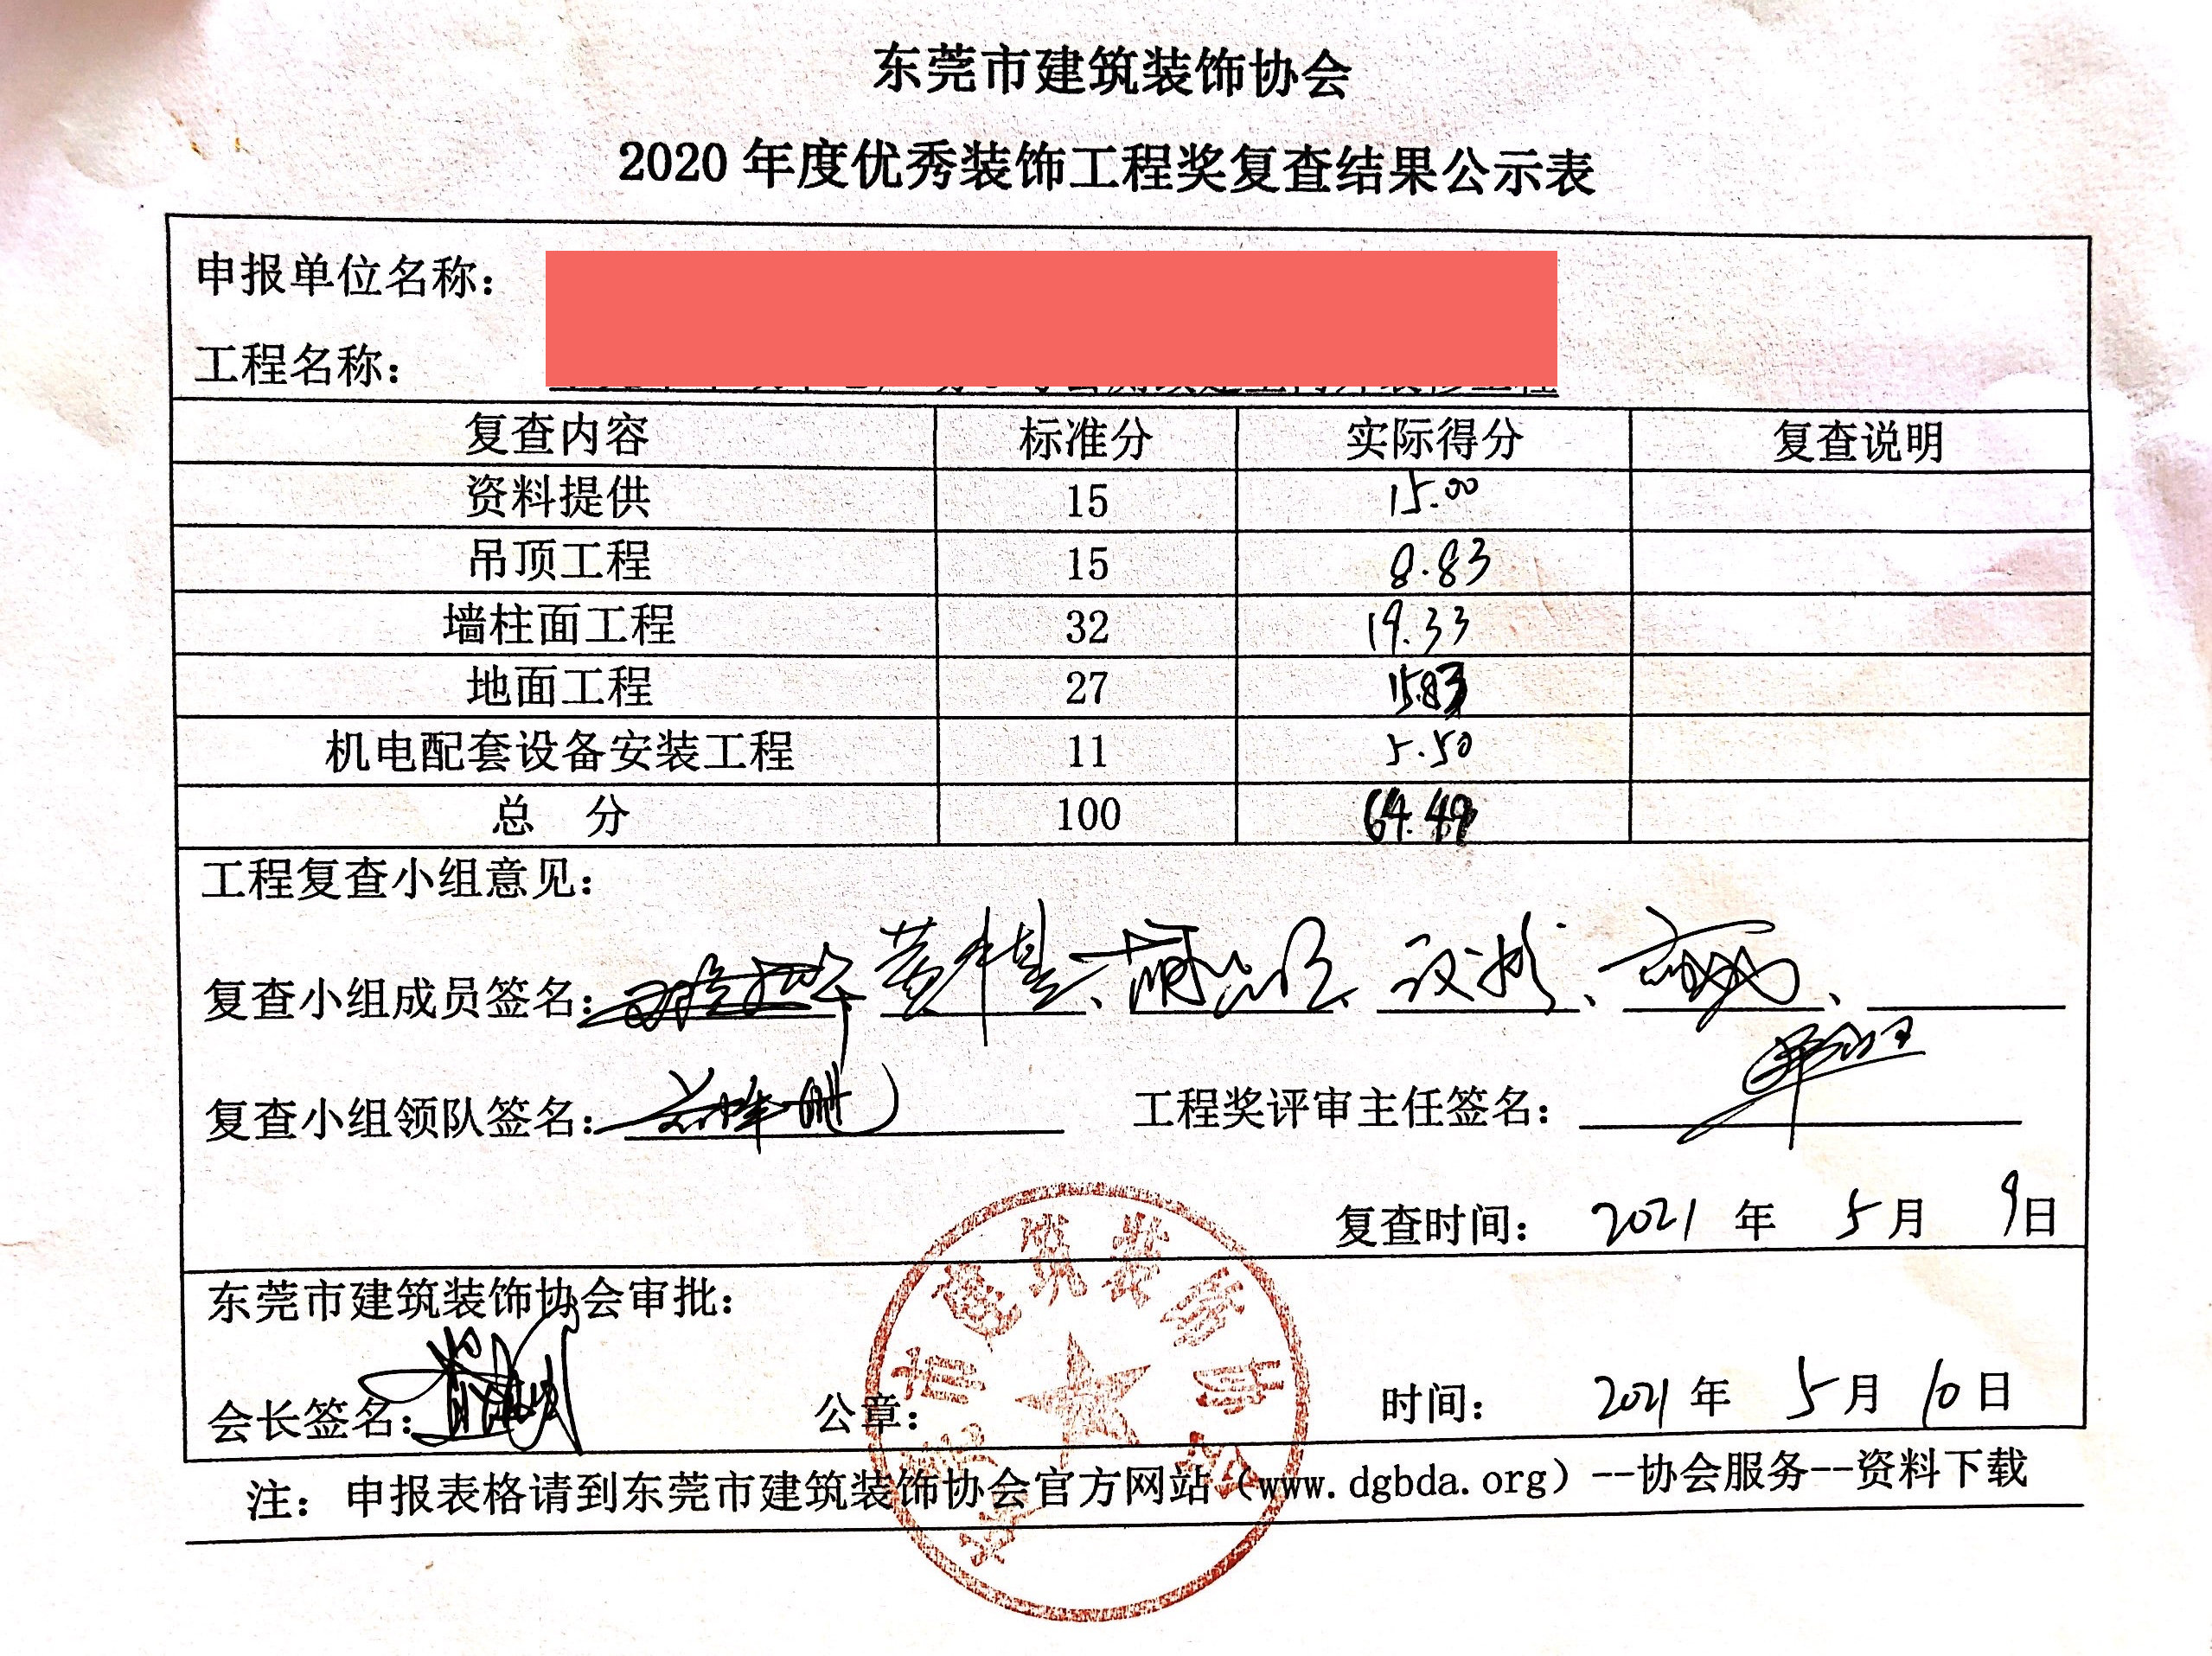 东莞市建筑装饰协会
2020 年度优秀装饰工程奖复查结果公示表
申报单位名称：
工程名称：
复查内容 标准分 实际得分 复查说明
资料提供 15 15.00
吊顶工程 15 8.83
墙柱面工程 32 19.33
地面工程 27 15.83
机电配套设备安装工程 11 5.50
总 分 100 64.49
工程复查小组意见：
复查小组成员签名：
复查小组领队签名： 工程奖评审主任签名：
复查时间： 2021 年 5 月 9 日
东莞市建筑装饰协会审批：
会长签名： 公章： 时间： 2021 年 5 月 10 日
注：申报表格请到东莞市建筑装饰协会官方网站（www.dgbda.org）--协会服务--资料下载